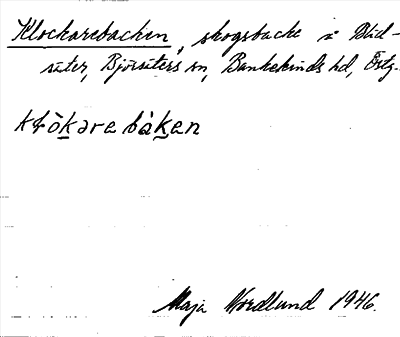 Klockarebacken, skogsbacke i Bläd-
säter, Björsäters sn, Bankekinds hd, Östg.
klòkarebàken
Maja Nordlund 1946.